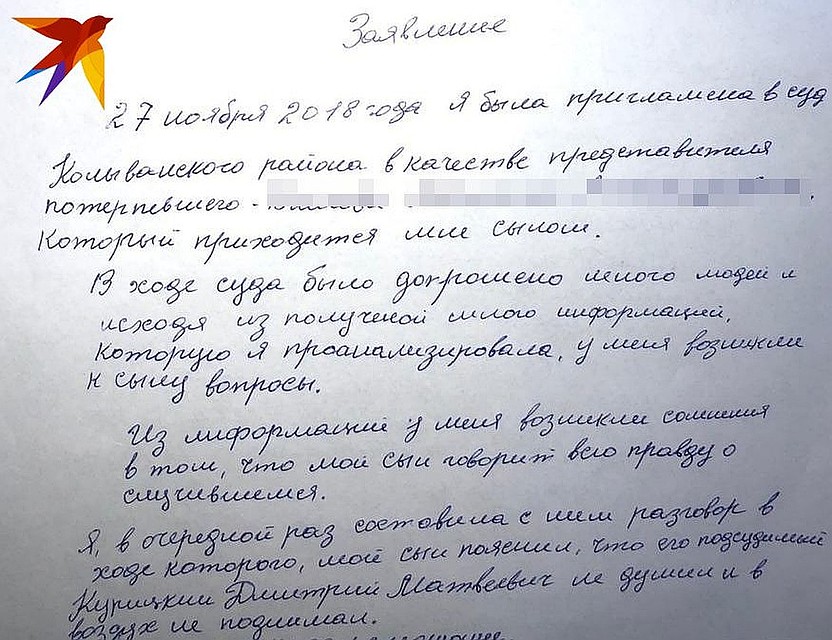 Заявление
27 ноября 2018 года я была приглашена в суд
Колыванского района в качестве представителя
потерпевшего -
Который приходится мне сыном.
В ходе суда было допрошено много людей и
исходя из полученой мною информаций,
которую я проанализировала, у меня возникли
к сыну вопросы.
Из информаций у меня возникли сомнения
в том, что мой сын говорит всю правду о
случившемся.
Я, в очередной раз составила с ним разговор в
ходе которого, мой сын пояснил, что его подсудимый
Курицкий Дмитрий Матвеевич не душил и в
воздух не поднимал.